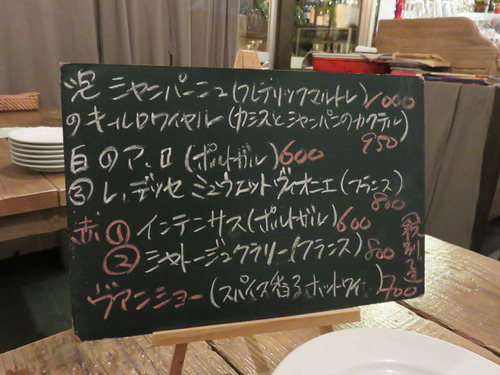 泡 シャンパーニュ(フレデリックマルトレ)1000
のキールロワイヤル(カシスとシャンパンのカクテル) 950
白の ア、ロ(ポルトガル)600
③レ、デッセ ミュウエットヴィオニエ(フランス) 800
赤①インテンサス(ポルトガル)600
②シャトージュクラリー(フランス)800
ヴァンショー(スパイス香るホットワイン)700
(税別